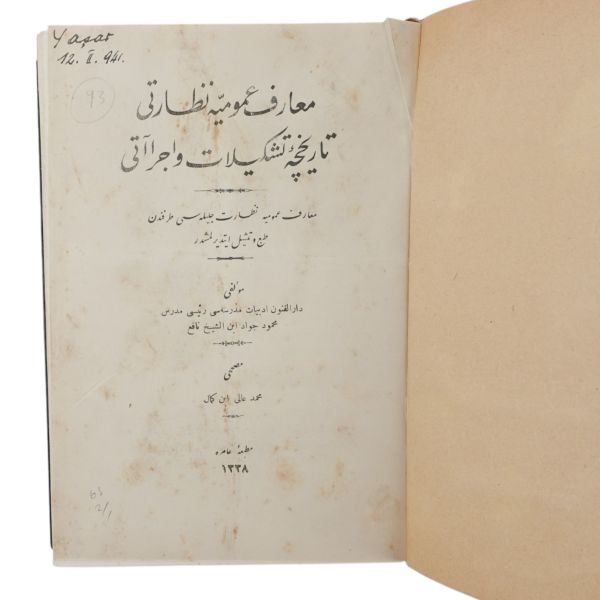 Yaşar
12. II. 941.
93
معارف عمومیه نظارتی
تاریخچهٔ تشکیلات و اجراآتی
معارف عمومیه نظارت جلیله‌سی طرفندن
طبع و تمثیل ایتدیرلمشدر
مؤلفی
دارالفنون ادبیات مدرسه‌سی رئیسی مدرس
محمود جواد ابن الشیخ نافع
مصححی
محمد عالی ابن کمال
مطبعهٔ عامره
١٣٣٨
63
2/1